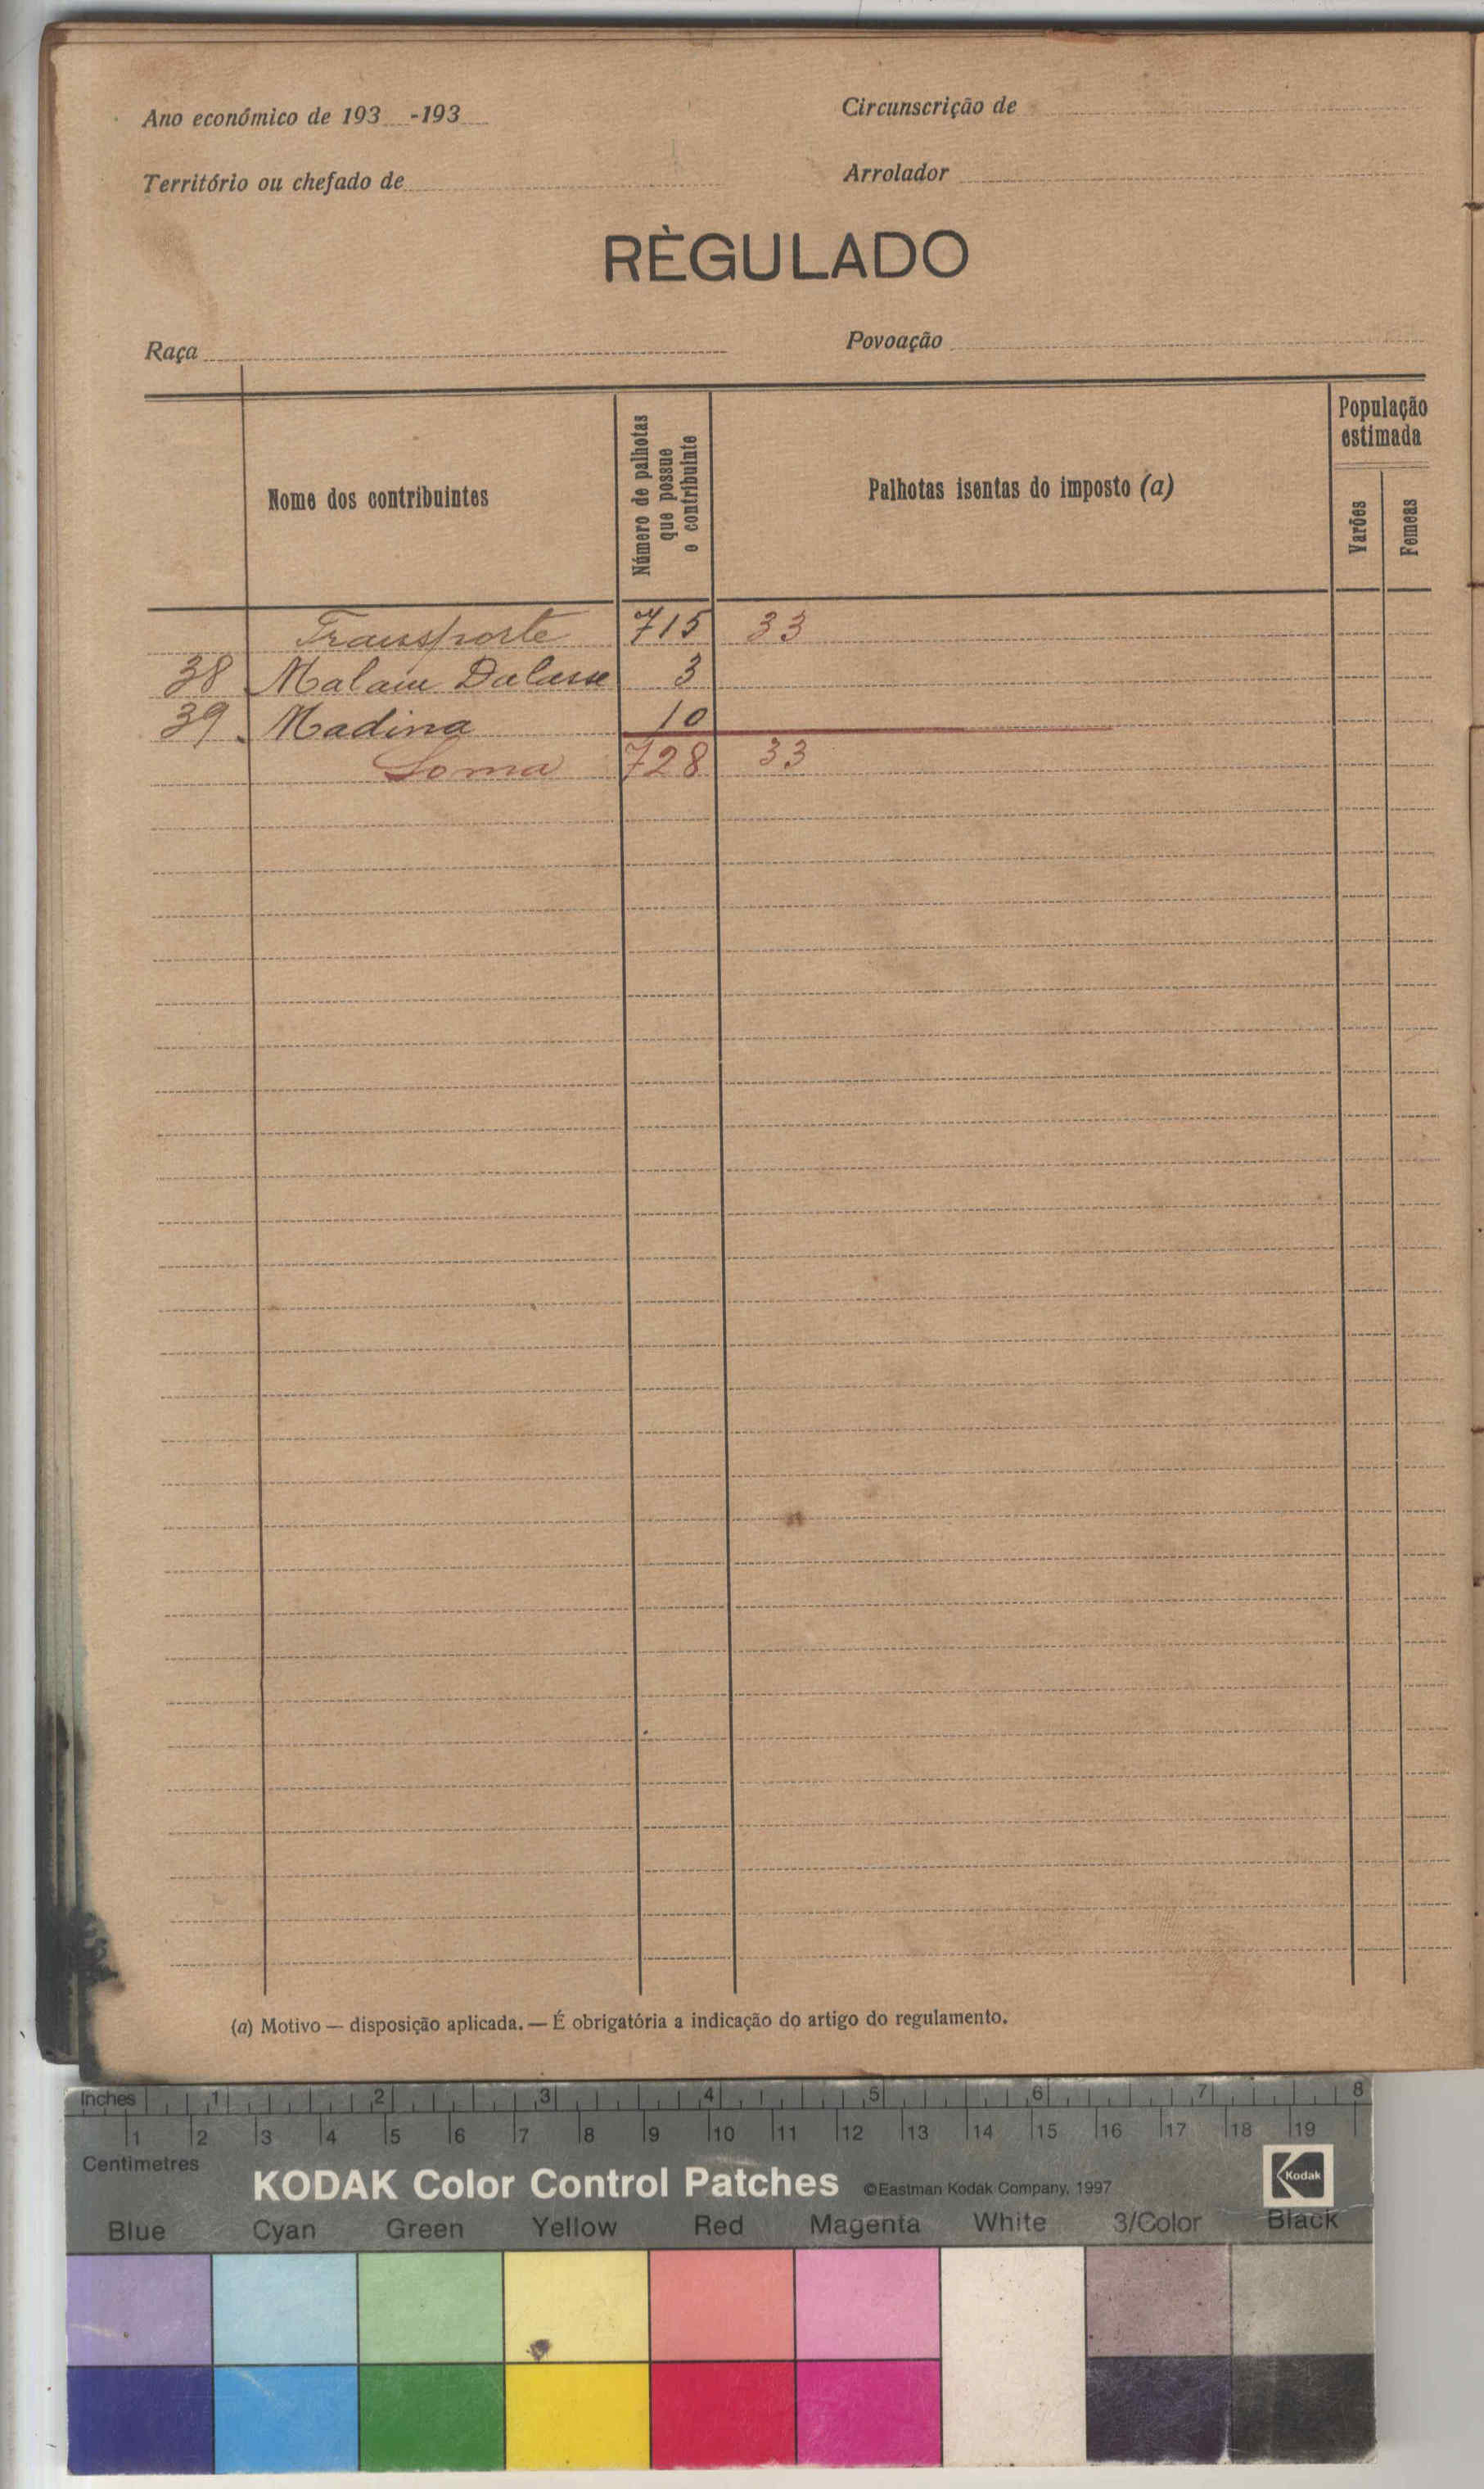 Ano económico de 193 -193
Circunscrição de
Território ou chefado de
Arrolador
RÈGULADO
Raça
Povoação
Nome dos contribuintes
Número de palhotas
que possue
o contribuinte
Palhotas isentas do imposto (a)
População
estimada
Varões
Femeas
Transporte 715 33
38 Malam Dalasse 3
39. Madina 10
Soma 728 33
(a) Motivo — disposição aplicada. — É obrigatória a indicação do artigo do regulamento.
Inches 1 2 3 4 5 6 7 8
1 2 3 4 5 6 7 8 9 10 11 12 13 14 15 16 17 18 19
Centimetres
KODAK Color Control Patches ©Eastman Kodak Company, 1997 Kodak
Blue Cyan Green Yellow Red Magenta White 3/Color Black